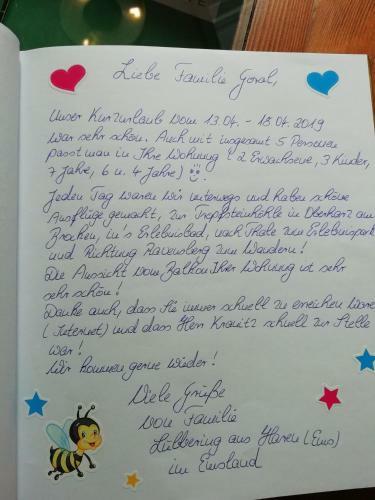 Liebe Familie Goral,
Unser Kurzurlaub vom 13.04. - 18.04.2019
war sehr schön. Auch mit insgesamt 5 Personen
passt man in Ihre Wohnung (2 Erwachsene, 3 Kinder,
7 Jahre, 6 u. 4 Jahre)
Jeden Tag waren wir unterwegs und haben schöne
Ausflüge gemacht, zur Tropfsteinhöhle in Oberharz am
Brocken, in's Erlebnisbad, nach Thale zum Erlebnispark
und Richtung Ravensberg zum Wandern!
Die Aussicht vom Balkon Ihrer Wohnung ist sehr
sehr schön!
Danke auch, dass Sie immer schnell zu erreichen waren
(Internet) und dass Herr Krawitz schnell zur Stelle
war!
Wir kommen gerne wieder!
Viele Grüße
von Familie
Lübbering aus Haren (Ems)
im Emsland